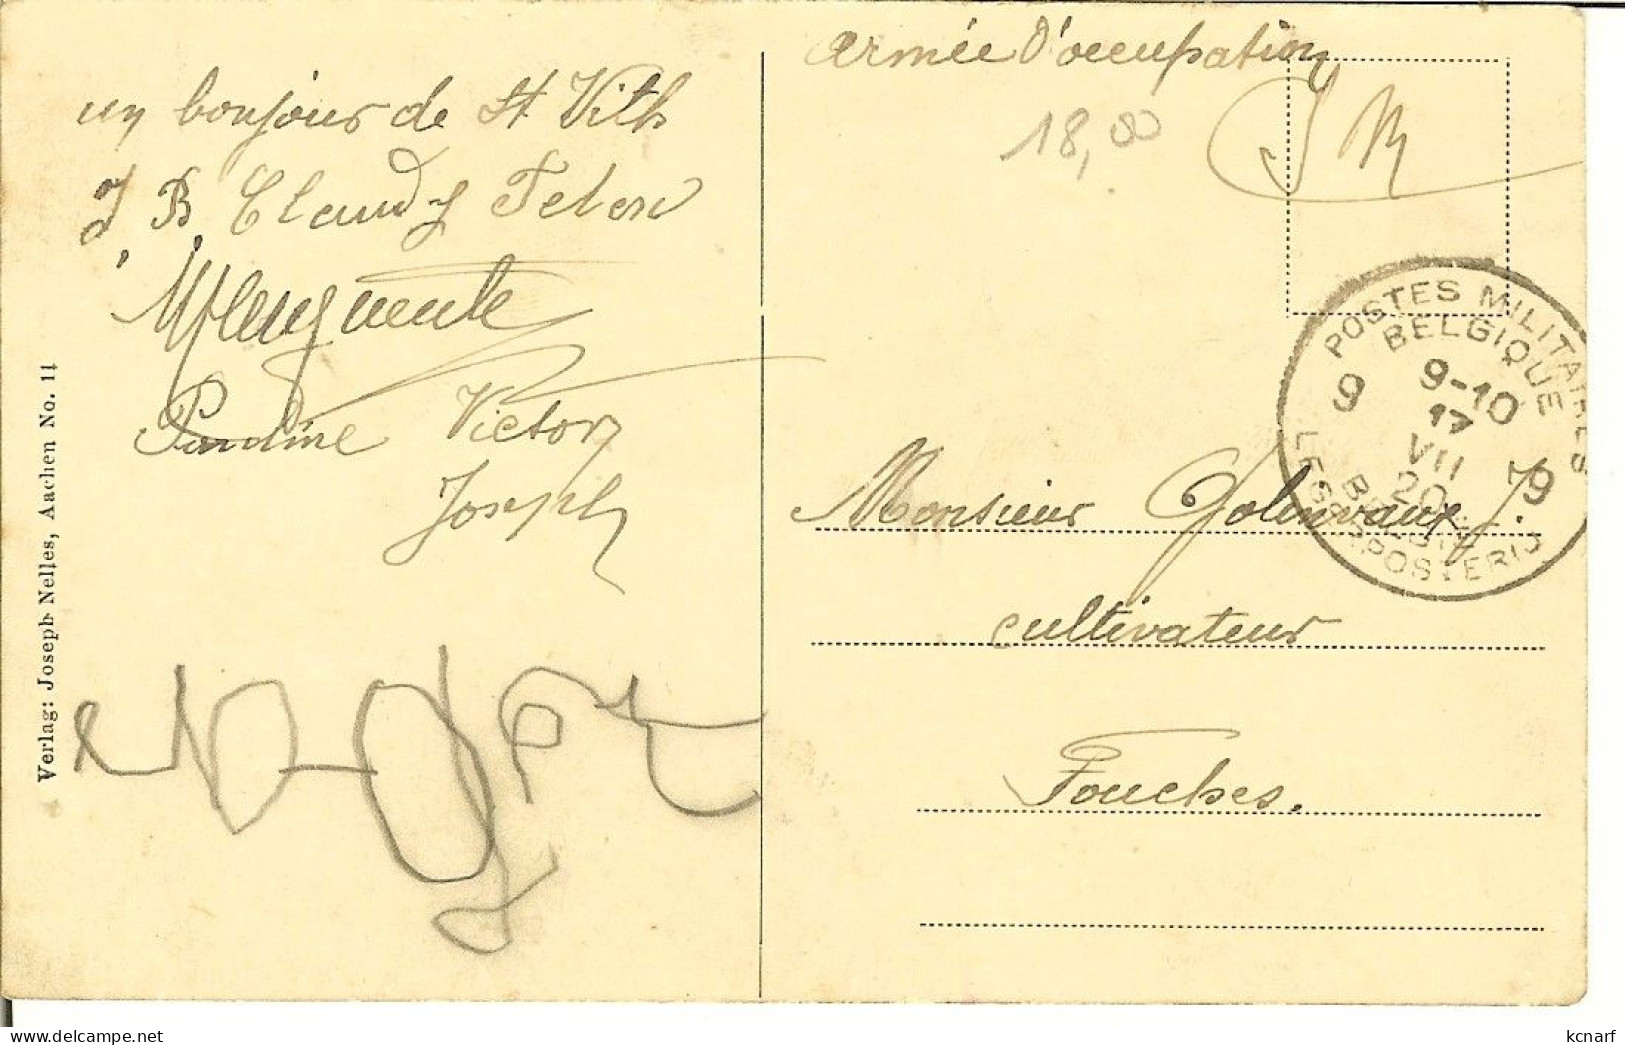 Armée d'occupation
un bonjour de St Vith
18,00
S M
J. B. Claudy
Pauline Victor
Joseph
Verlag: Joseph Nelles, Aachen No. 11
POSTES MILITAIRES
BELGIQUE
9 9-10 9
17
VII
20
BELGIË
LEGERPOSTERIJ
Monsieur J.
cultivateur
Fouches.
© delcampe.net
kcnarf